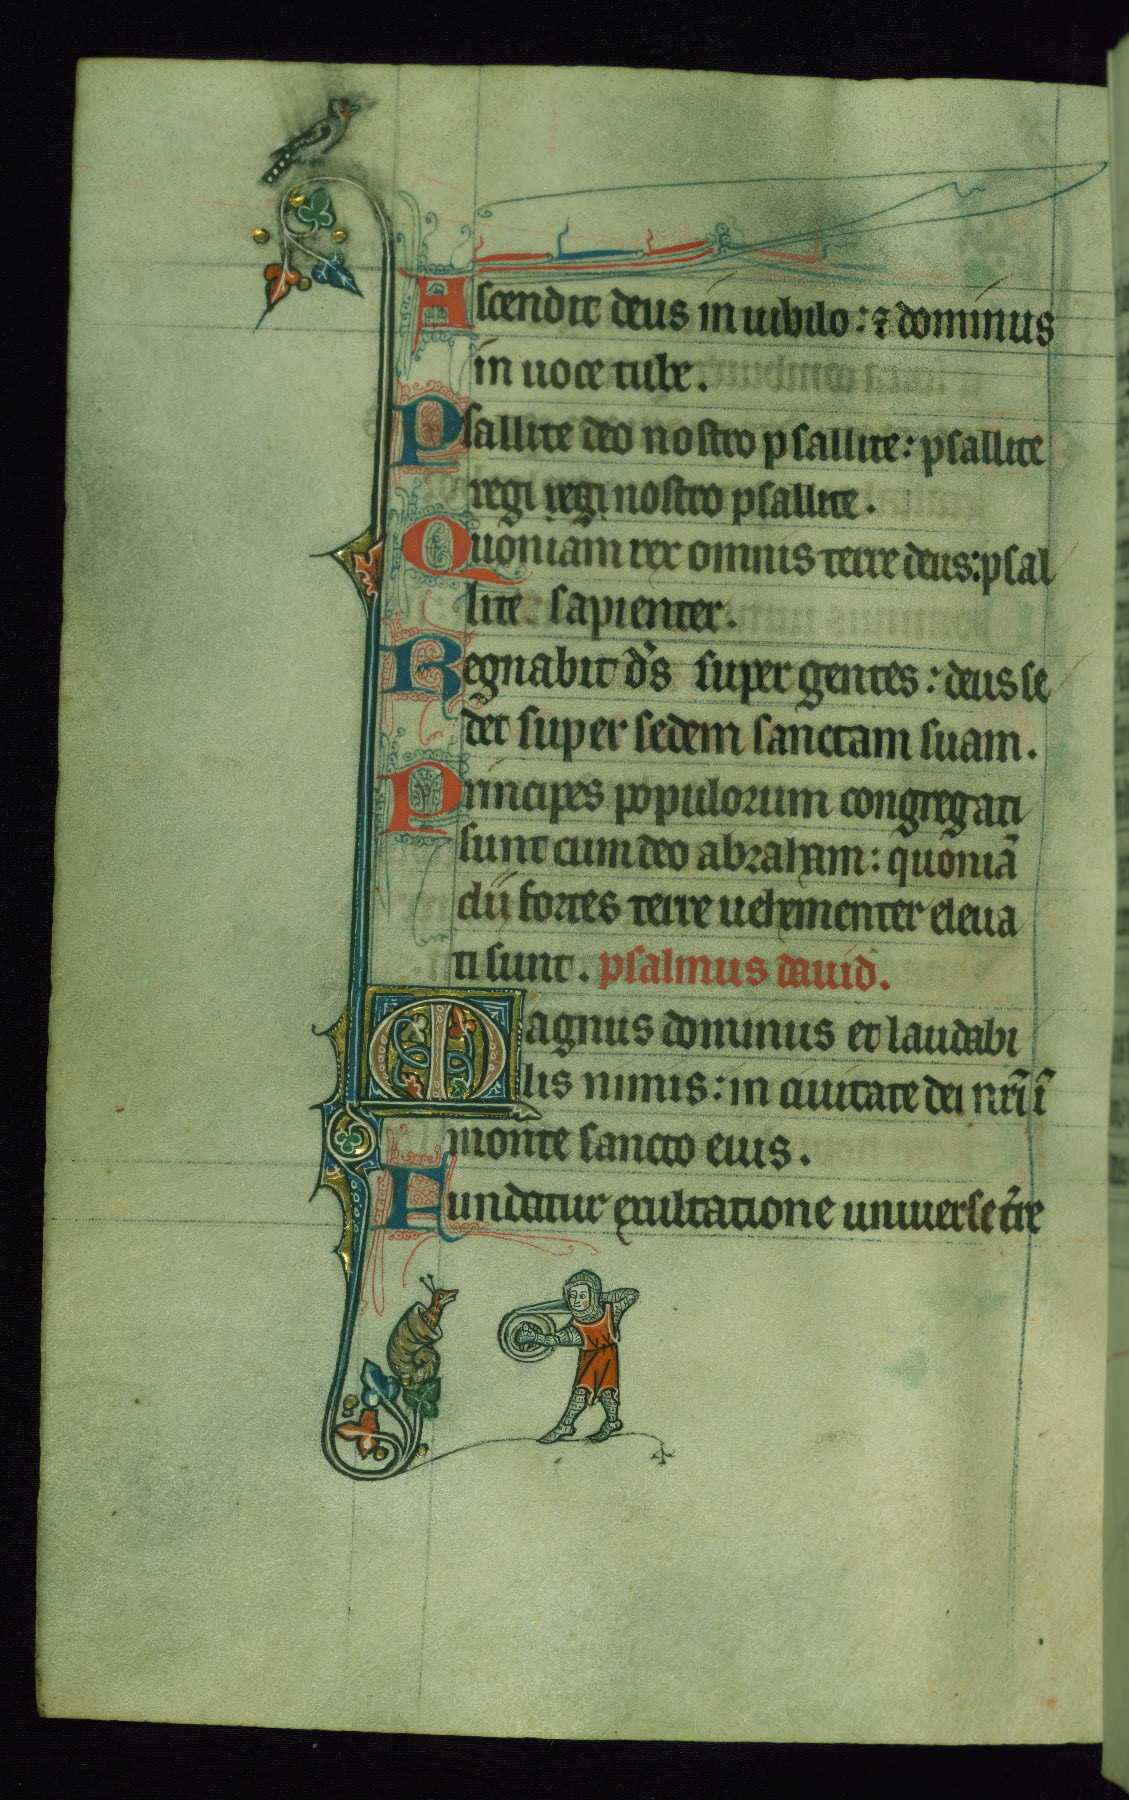 Ascendit deus in iubilo: ⁊ dominus
in uoce tube.
Psallite deo nostro psallite: psallite
regi regi nostro psallite.
Quoniam rex omnis terre deus: psal
lite sapienter.
Regnabit d̄s super gentes: deus se
det super sedem sanctam suam.
Principes populorum congregati
sunt cum deo abraham: quoniā
dii fortes terre uehementer eleua
ti sunt. psalmus dauid.
Magnus dominus et laudabi
lis nimis: in ciuitate dei nr̄i ī
monte sancto eius.
Fundatur exultatione uniuerse t̄re